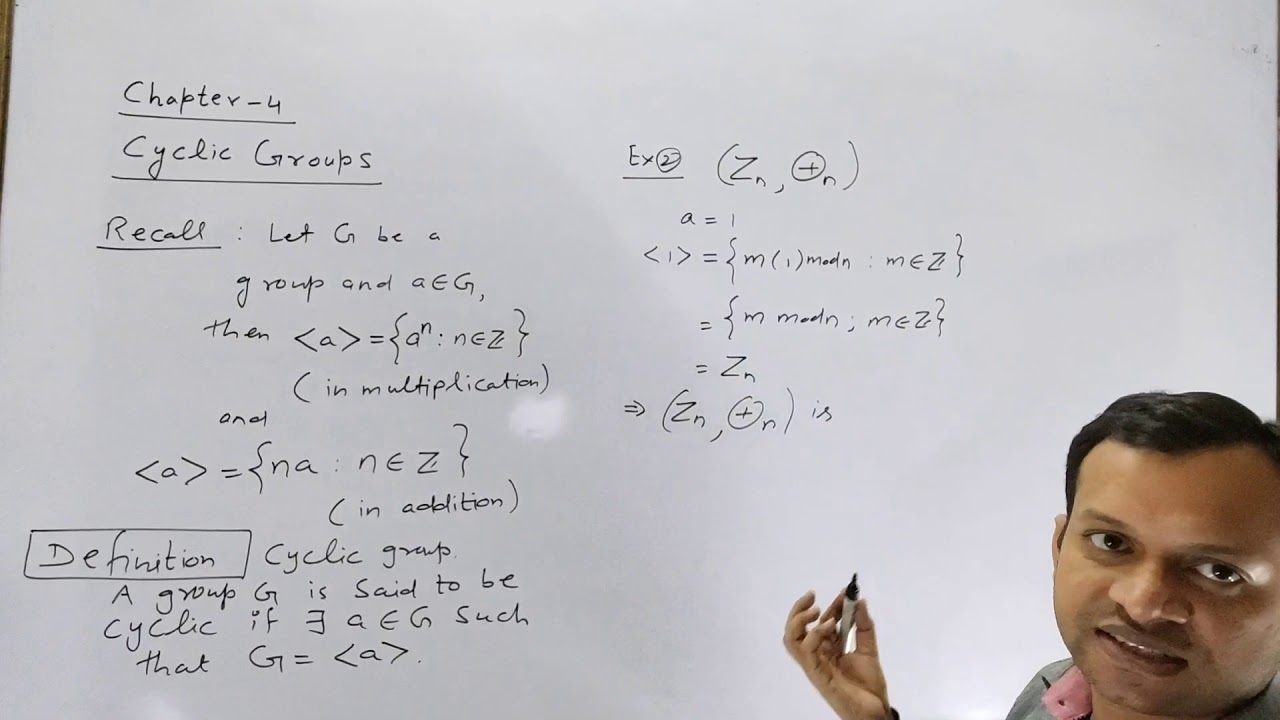 Chapter-4
Cyclic Groups
Recall : Let G be a
group and a∈G,
then <a> = {aⁿ : n∈ℤ}
(in multiplication)
and
<a> = {na : n∈ℤ}
(in addition)
Definition Cyclic group.
A group G is said to be
cyclic if ∃ a∈G such
that G = <a>.
Ex② (ℤₙ, ⊕ₙ)
a = 1
<1> = {m(1) mod n : m∈ℤ}
= {m mod n ; m∈ℤ}
= ℤₙ
⇒ (ℤₙ, ⊕ₙ) is